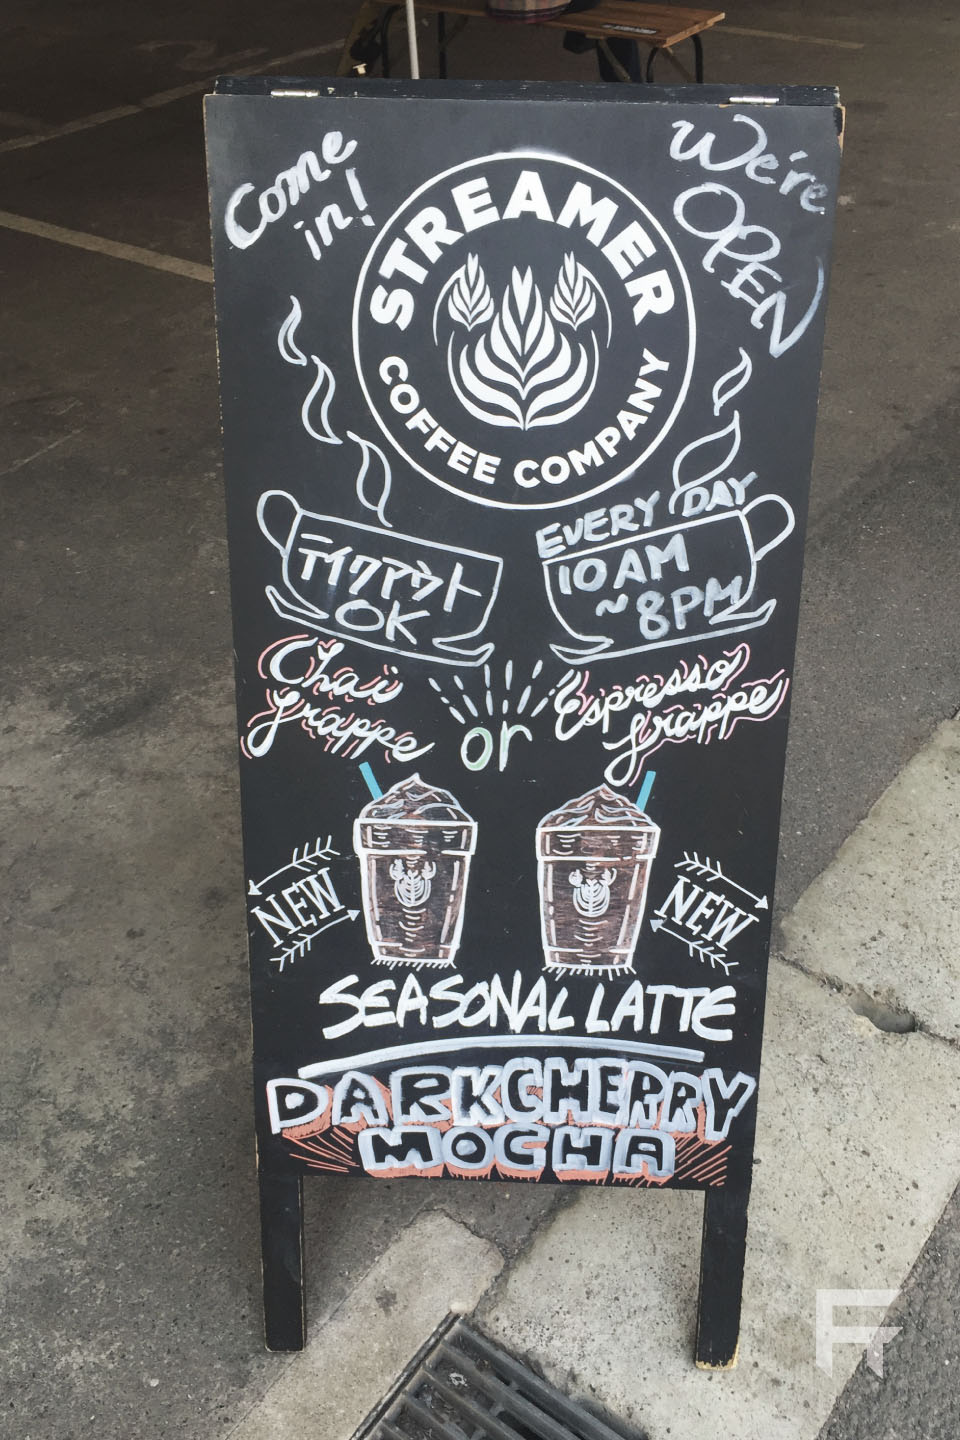 Come
in!
We're
OPEN
STREAMER
COFFEE COMPANY
テイクアウト
OK
EVERY DAY
10AM
~8PM
Chai
frappe
or
Espresso
frappe
NEW
NEW
SEASONAL LATTE
DARKCHERRY
MOCHA